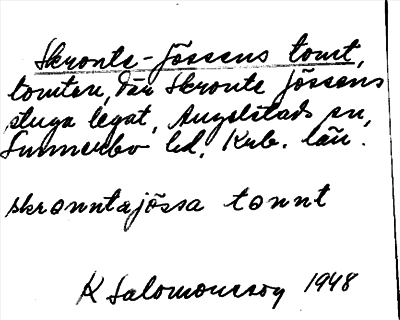 Skronte-Jössens tomt,
tomten, där Skronte Jössens
stuga legat, Angelstads sn,
Sunnerbo hd, Krb. län.
skronntajössa tonnt
K Salomonsson 1948